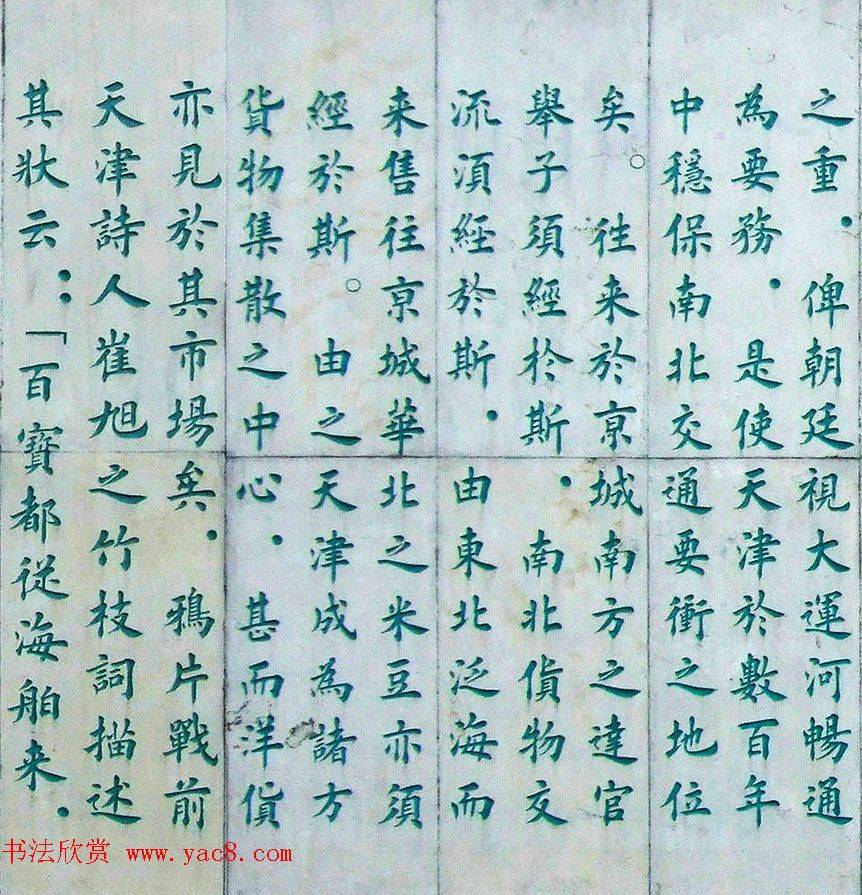 之重。俾朝廷視大運河暢通
為要務。是使天津於數百年
中穩保南北交通要衝之地位
矣。往来於京城南方之達官
舉子須經於斯。南北貨物交
流須經於斯。由東北泛海而
来售往京城華北之米豆亦須
經於斯。由之天津成為諸方
貨物集散之中心。甚而洋貨
亦見於其市場矣。鴉片戰前
天津詩人崔旭之竹枝詞描述
其狀云：「百寶都從海舶来。
书法欣赏 www.yac8.com